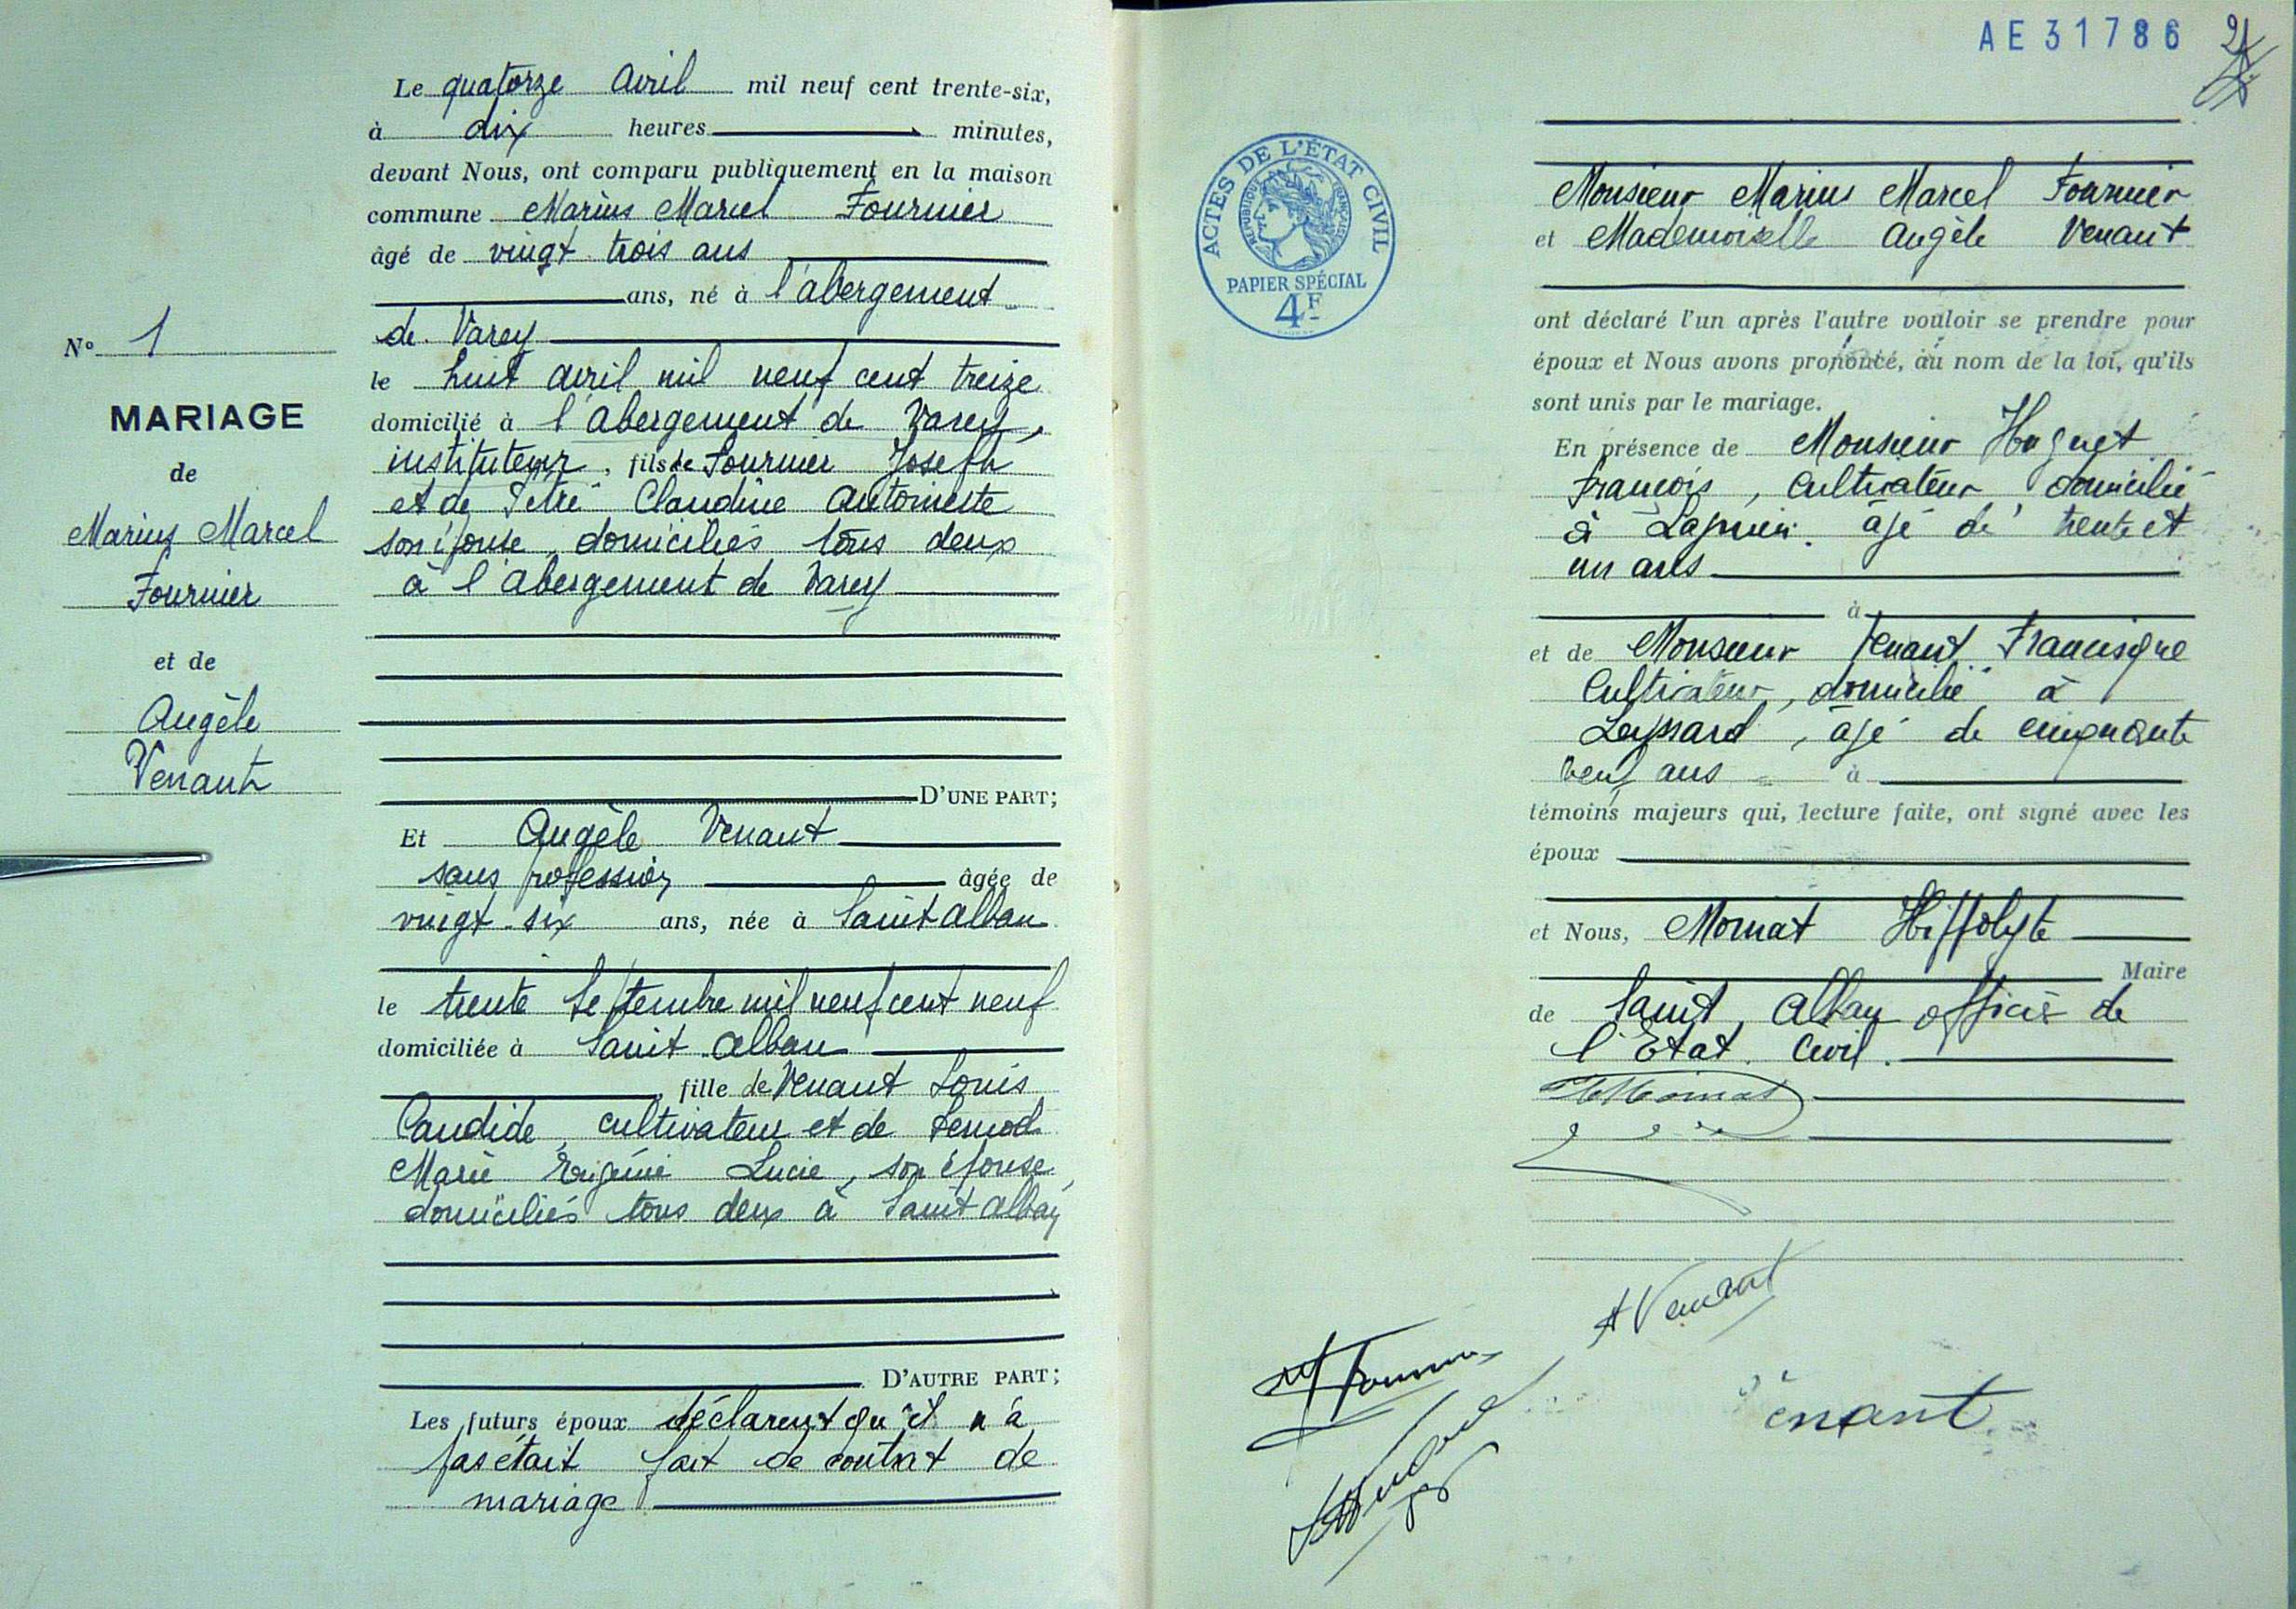 Le quatorze Avril mil neuf cent trente-six,
à dix heures minutes,
devant Nous, ont comparu publiquement en la maison
commune Marius Marcel Fournier
âgé de vingt trois ans
ans, né à l'abergement
de Varey
le huit avril mil neuf cent treize
domicilié à l'abergement de Varey,
instituteur, fils de Fournier Joseph
et de Claudine Antoinette
son épouse, domiciliés tous deux
à l'abergement de Varey
N° 1
MARIAGE
de
Marius Marcel
Fournier
et de
Angèle
Venant
D'UNE PART;
Et Angèle Venant
sans profession âgée de
vingt-six ans, née à Saint alban
le trente Septembre mil neuf cent neuf
domiciliée à Saint alban
, fille de Venant Louis
Candide, cultivateur et de
Marie Eugénie Lucie, son épouse,
domiciliés tous deux à Saint alban
D'AUTRE PART;
Les futurs époux déclarent qu'il n'a
pas était fait de contrat de
mariage
AE31786
ACTES DE L'ÉTAT CIVIL
RÉPUBLIQUE FRANÇAISE
PAPIER SPÉCIAL
4F
Monsieur Marius Marcel Fournier
et Mademoiselle Angèle Venant
ont déclaré l'un après l'autre vouloir se prendre pour
époux et Nous avons prononcé, au nom de la loi, qu'ils
sont unis par le mariage.
En présence de Monsieur Huguet
françois, Cultivateur domicilié
à âgé de trente et
un ans
à
et de Monsieur Venant Francisque
Cultivateur, domicilié à
Leyssard, âgé de cinquante
neuf ans à
témoins majeurs qui, lecture faite, ont signé avec les
époux
et Nous, Mornat Hippolyte
Maire
de Saint Alban officier de
l'Etat Civil.
HMornat
A Venant
M Fournier
Venant